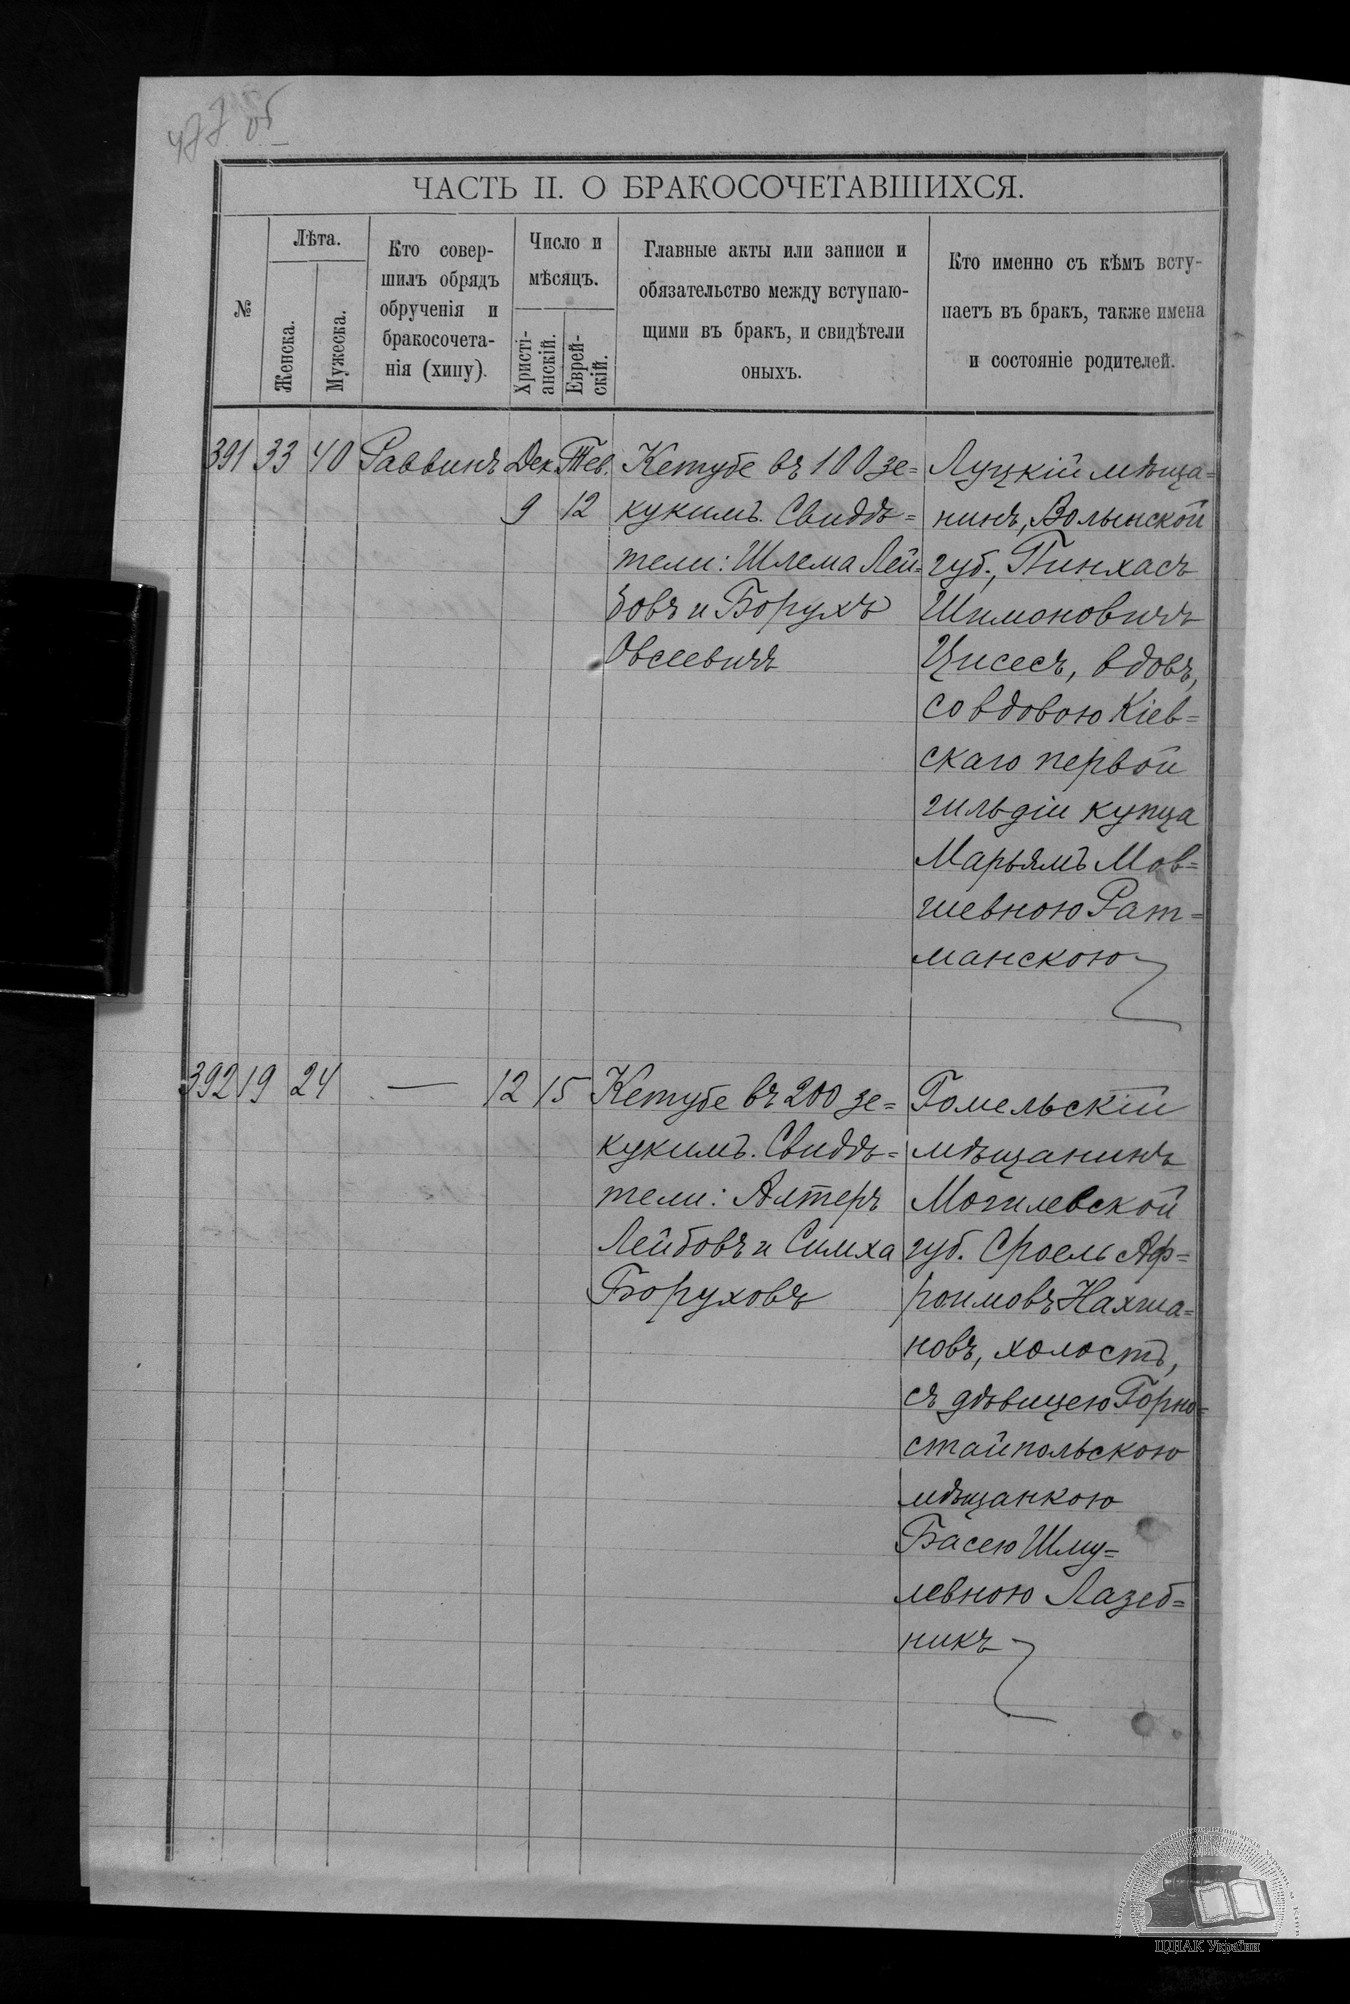 477 об
ЧАСТЬ II. О БРАКОСОЧЕТАВШИХСЯ.
№
Лѣта.
Женска.
Мужеска.
Кто совер-
шилъ обрядъ
обрученія и
бракосочета-
нія (хипу).
Число и
мѣсяцъ.
Христі-
анскій.
Еврей-
скій.
Главные акты или записи и
обязательство между вступаю-
щими въ бракъ, и свидѣтели
оныхъ.
Кто именно съ кѣмъ всту-
паетъ въ бракъ, также имена
и состояніе родителей.
391 33 40 Раввинъ Дек. Тев.
9 12
Кетубе въ 100 зе=
кукимъ. Свидѣ=
тели: Шлема Лей=
зовъ и Борухъ
Овсеевичъ
Луцкій мѣща=
нинъ, Волынской
губ., Пинхасъ
Шимоновичъ
Цисесъ, вдовъ,
со вдовою Кіев=
скаго первой
гильдіи купца
Марьямъ Мов=
шевною Рат=
манскою
392 19 24 — 12 15
Кетубе въ 200 зе=
кукимъ. Свидѣ=
тели: Алтеръ
Лейбовъ и Симха
Боруховъ
Гомельскій
мѣщанинъ
Могилевской
губ. Сроель Аф=
роимовъ Нахма=
новъ, холостъ,
съ дѣвицею Горно=
стайпольскою
мѣщанкою
Басею Шму=
левною Лазеб=
никъ
ЦДІАК України